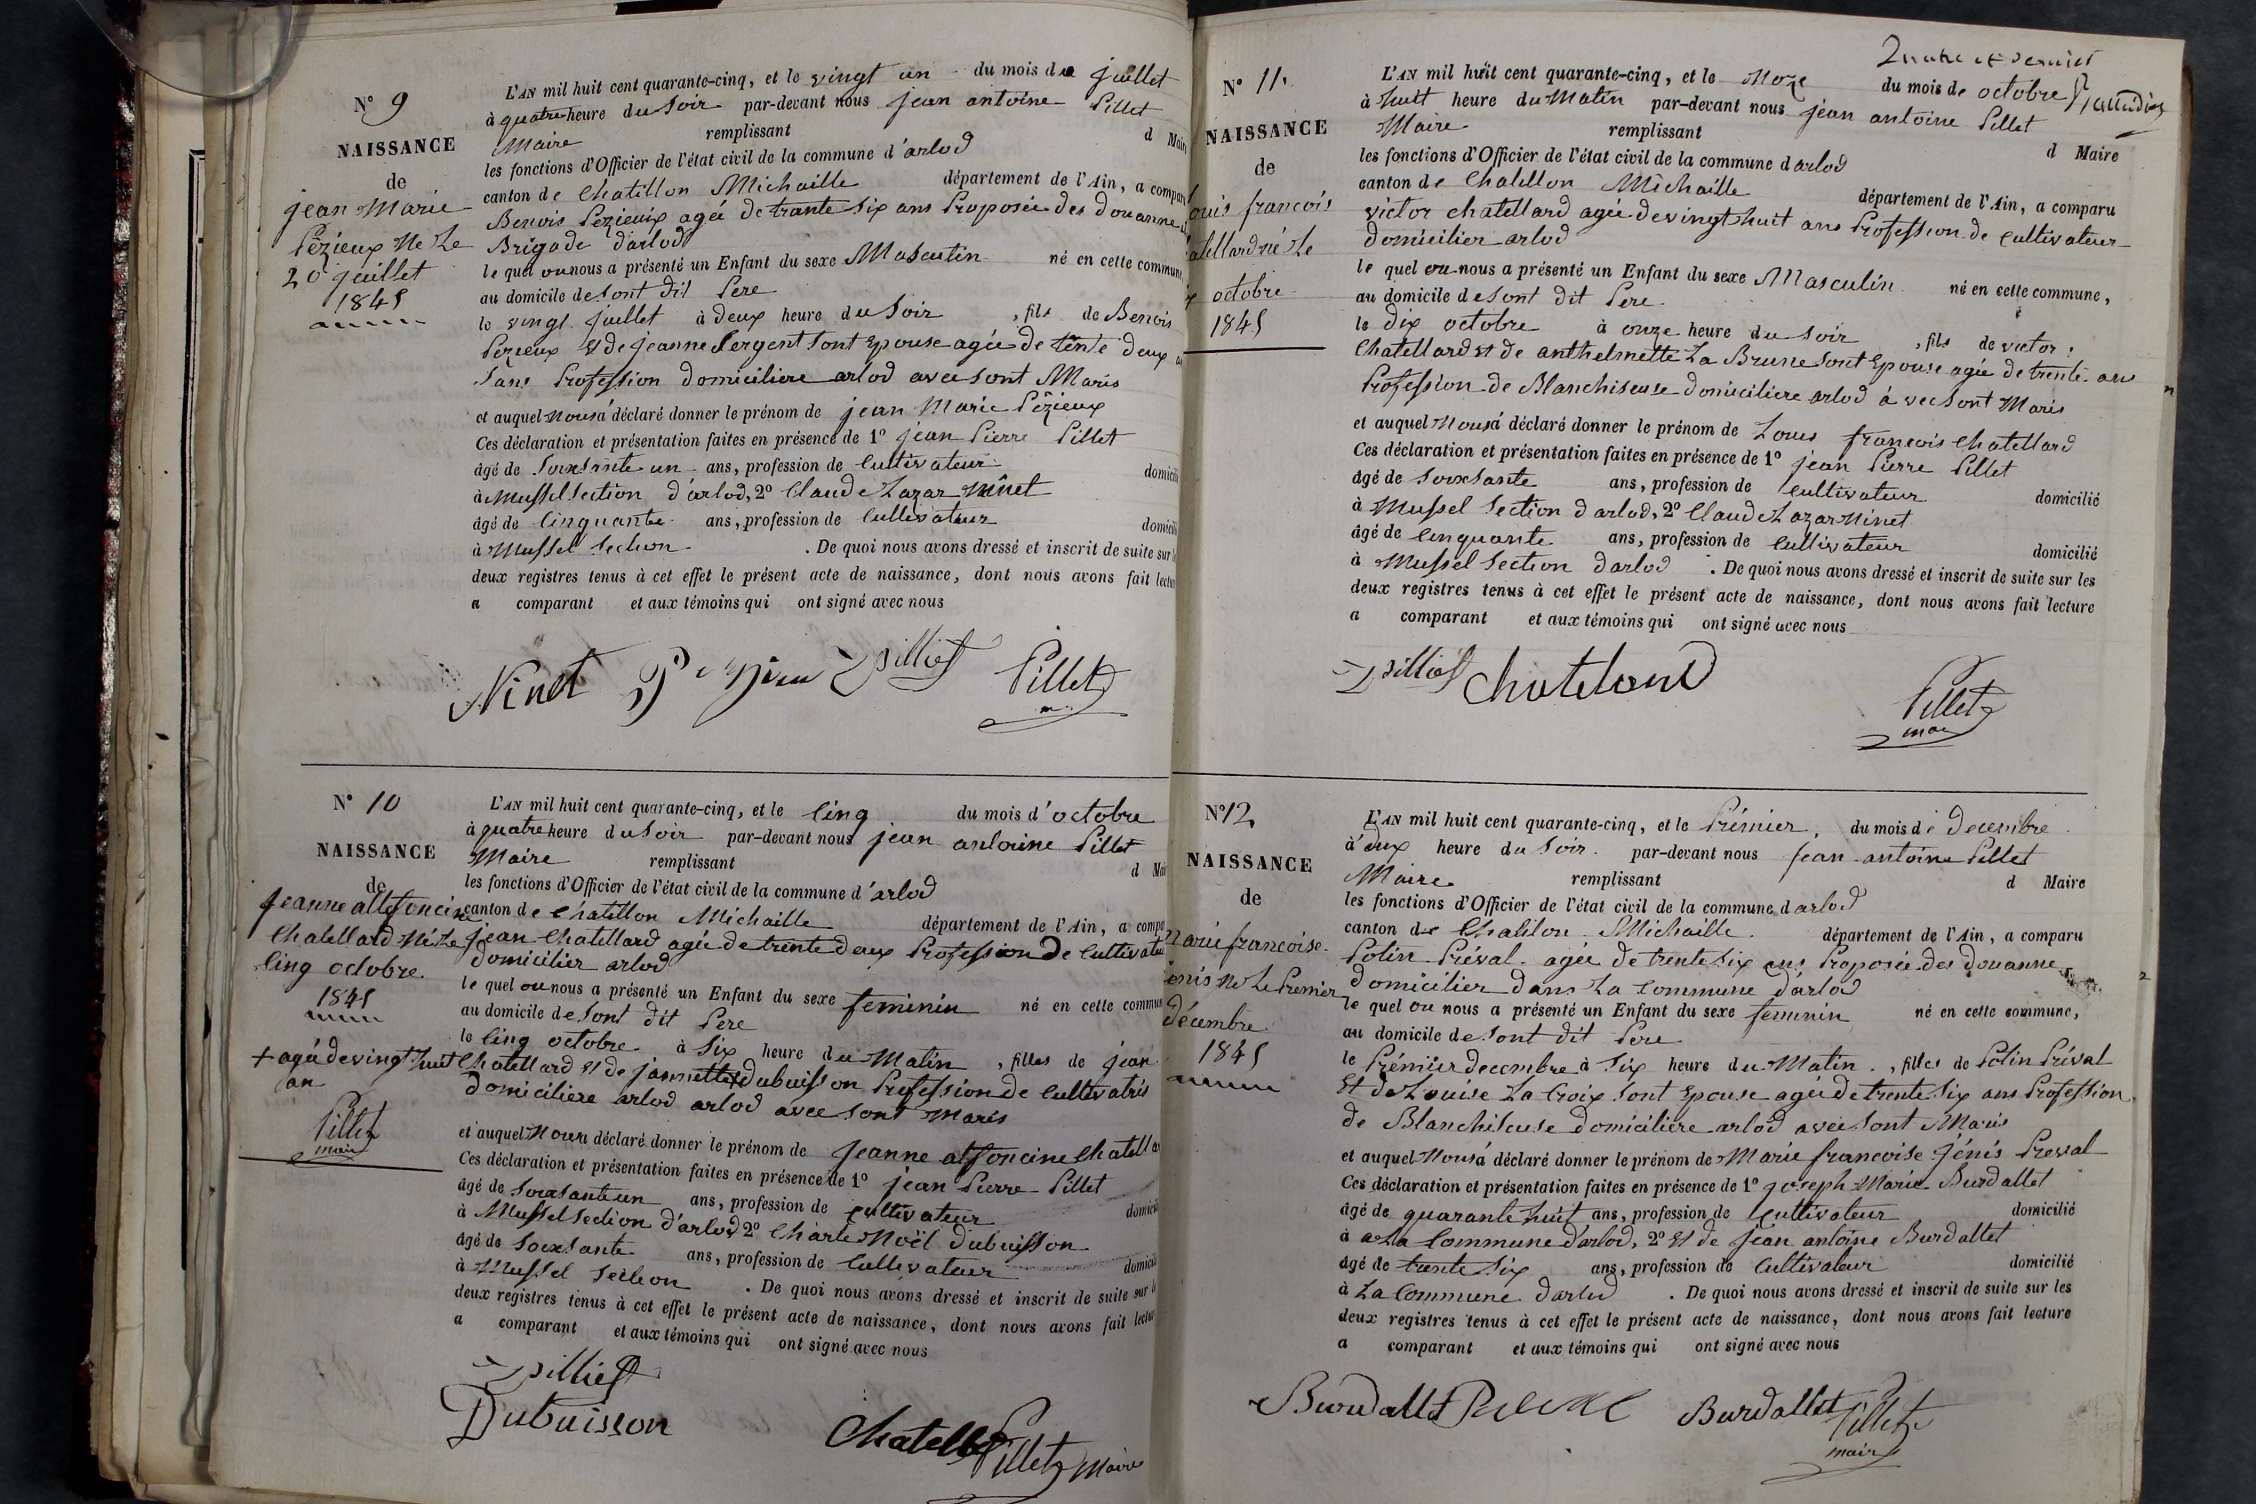 N° 9
NAISSANCE
de
jean Marie
Pézieux Né Le
20 juillet
1845
L'AN mil huit cent quarante-cinq, et le vingt un du mois de juillet
à quatre heure du Soir par-devant nous jean antoine Pillet
Maire remplissant d Maire
les fonctions d'Officier de l'état civil de la commune d'arlod
canton de Chatillon Michaille département de l'Ain, a compar
Benois Pezieux agée de trante Six ans Proposée des douanne
Brigade d'arlod
le quel ou nous a présenté un Enfant du sexe Masculin né en cette commune
au domicile de sont dit Pere
le vingt juillet à deux heure du Soir , fils de Benois
Pezieux et de jeanne Sergent Sont Epouse agée de tente deux
Sans Profession domiciliere arlod avec sont Maris
et auquel Nous a déclaré donner le prénom de jean Marie Pézieux
Ces déclaration et présentation faites en présence de 1° jean Pierre Pillet
âgé de Soixsante un ans, profession de Cultivateur domicili
à Mussel Section d'arlod, 2° Claude Lazar Ninet
âgé de Cinquante ans, profession de Cultivateur domicili
à Mussel Section . De quoi nous avons dressé et inscrit de suite sur le
deux registres tenus à cet effet le présent acte de naissance, dont nous avons fait lectur
a comparant et aux témoins qui ont signé avec nous
Ninet Pilliet Pillet
m.
N° 10
NAISSANCE
de
Jeanne alfoncine
Chatellard Né Le
Cinq octobre
1845
+ agée de vingt huit
an
Pillet
maire
L'AN mil huit cent quarante-cinq, et le Cinq du mois d'octobre
à quatre heure du Soir par-devant nous jean antoine Pillet
Maire remplissant d Mai
les fonctions d'Officier de l'état civil de la commune d'arlod
canton de Chatillon Michaille département de l'Ain, a compa
jean Chatellard agée de trente deux Profession De Cultivateu
domicilier arlod
le quel ou nous a présenté un Enfant du sexe feminin né en cette commun
au domicile de sont dit Pere
le Cinq octobre à Six heure du Matin , filles de jean
Chatellard et de jannette + dubuisson Profession de Cultivatris
domiciliere arlod arlod avec sont Maris
et auquel Nous a déclaré donner le prénom de Jeanne alfoncine Chatella
Ces déclaration et présentation faites en présence de 1° jean Pierre Pillet
âgé de soixsante un ans, profession de Cultivateur domicili
à Mussel Section d'arlod 2° Charle Noël dubuisson
âgé de Soixsante ans, profession de Cultivateur domicili
à Mussel Section . De quoi nous avons dressé et inscrit de suite sur le
deux registres tenus à cet effet le présent acte de naissance, dont nous avons fait lectur
a comparant et aux témoins qui ont signé avec nous
Pilliet
Dubuisson Chatell Pillet maire
N° 11
NAISSANCE
de
ouis francois
atellard né Le
octobre
1845
L'AN mil huit cent quarante-cinq, et le Onze du mois de octobre
à huit heure du Matin par-devant nous jean antoine Pillet
Maire remplissant d Maire
les fonctions d'Officier de l'état civil de la commune d arlod
canton de Chatillon Michaille département de l'Ain, a comparu
victor chatellard agée de vingt huit ans Profession de Cultivateur
domicilier arlod
le quel ou nous a présenté un Enfant du sexe Masculin né en cette commune,
au domicile de sont dit Pere
le dix octobre à onze heure du Soir , fils de victor
Chatellard et de anthelmette La Brune sont Epouse agée de trente ans
Profession de Blanchiseuse domiciliere arlod avec sont Maris
et auquel Nous a déclaré donner le prénom de Louis francois Chatellard
Ces déclaration et présentation faites en présence de 1° jean Pierre Pillet
âgé de Soixsante ans, profession de Cultivateur domicilié
à Mussel Section d arlod, 2° Claude Lazar Ninet
âgé de Cinquante ans, profession de Cultivateur domicilié
à Mussel Section darlod . De quoi nous avons dressé et inscrit de suite sur les
deux registres tenus à cet effet le présent acte de naissance, dont nous avons fait lecture
a comparant et aux témoins qui ont signé avec nous
Pilliet Chatelard Pillet
mai
N° 12
NAISSANCE
de
marie francoise
enis Né Le Premier
décembre
1845
L'AN mil huit cent quarante-cinq, et le Prémier du mois de Decembre
à deux heure du Soir par-devant nous jean antoine Pillet
Maire remplissant d Maire
les fonctions d'Officier de l'état civil de la commune d arlod
canton de Chatilon Michaille département de l'Ain, a comparu
Polin Préval agée de trente Six ans Proposée des douanne
domicilier dans La Commune d'arlod
le quel ou nous a présenté un Enfant du sexe feminin né en cette commune,
au domicile de sont dit Pere
le Prémier decembre à Six heure du Matin , filles de Polin Préval
Et de Louise La Croix sont Epouse agée de trente Six ans Profession
de Blanchiseuse domiciliere arlod avec sont Maris
et auquel Nous a déclaré donner le prénom de Marie francoise Jénis Preval
Ces déclaration et présentation faites en présence de 1° joseph Marie Burdallet
âgé de quarante huit ans, profession de Cultivateur domicilié
à a La Commune d'arlod, 2° et de jean antoine Burdallet
âgé de trente Six ans, profession de Cultivateur domicilié
à La Commune d'arlod . De quoi nous avons dressé et inscrit de suite sur les
deux registres tenus à cet effet le présent acte de naissance, dont nous avons fait lecture
a comparant et aux témoins qui ont signé avec nous
Burdallet Burdallet Pillet
maire